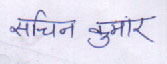 सचिन कुमार